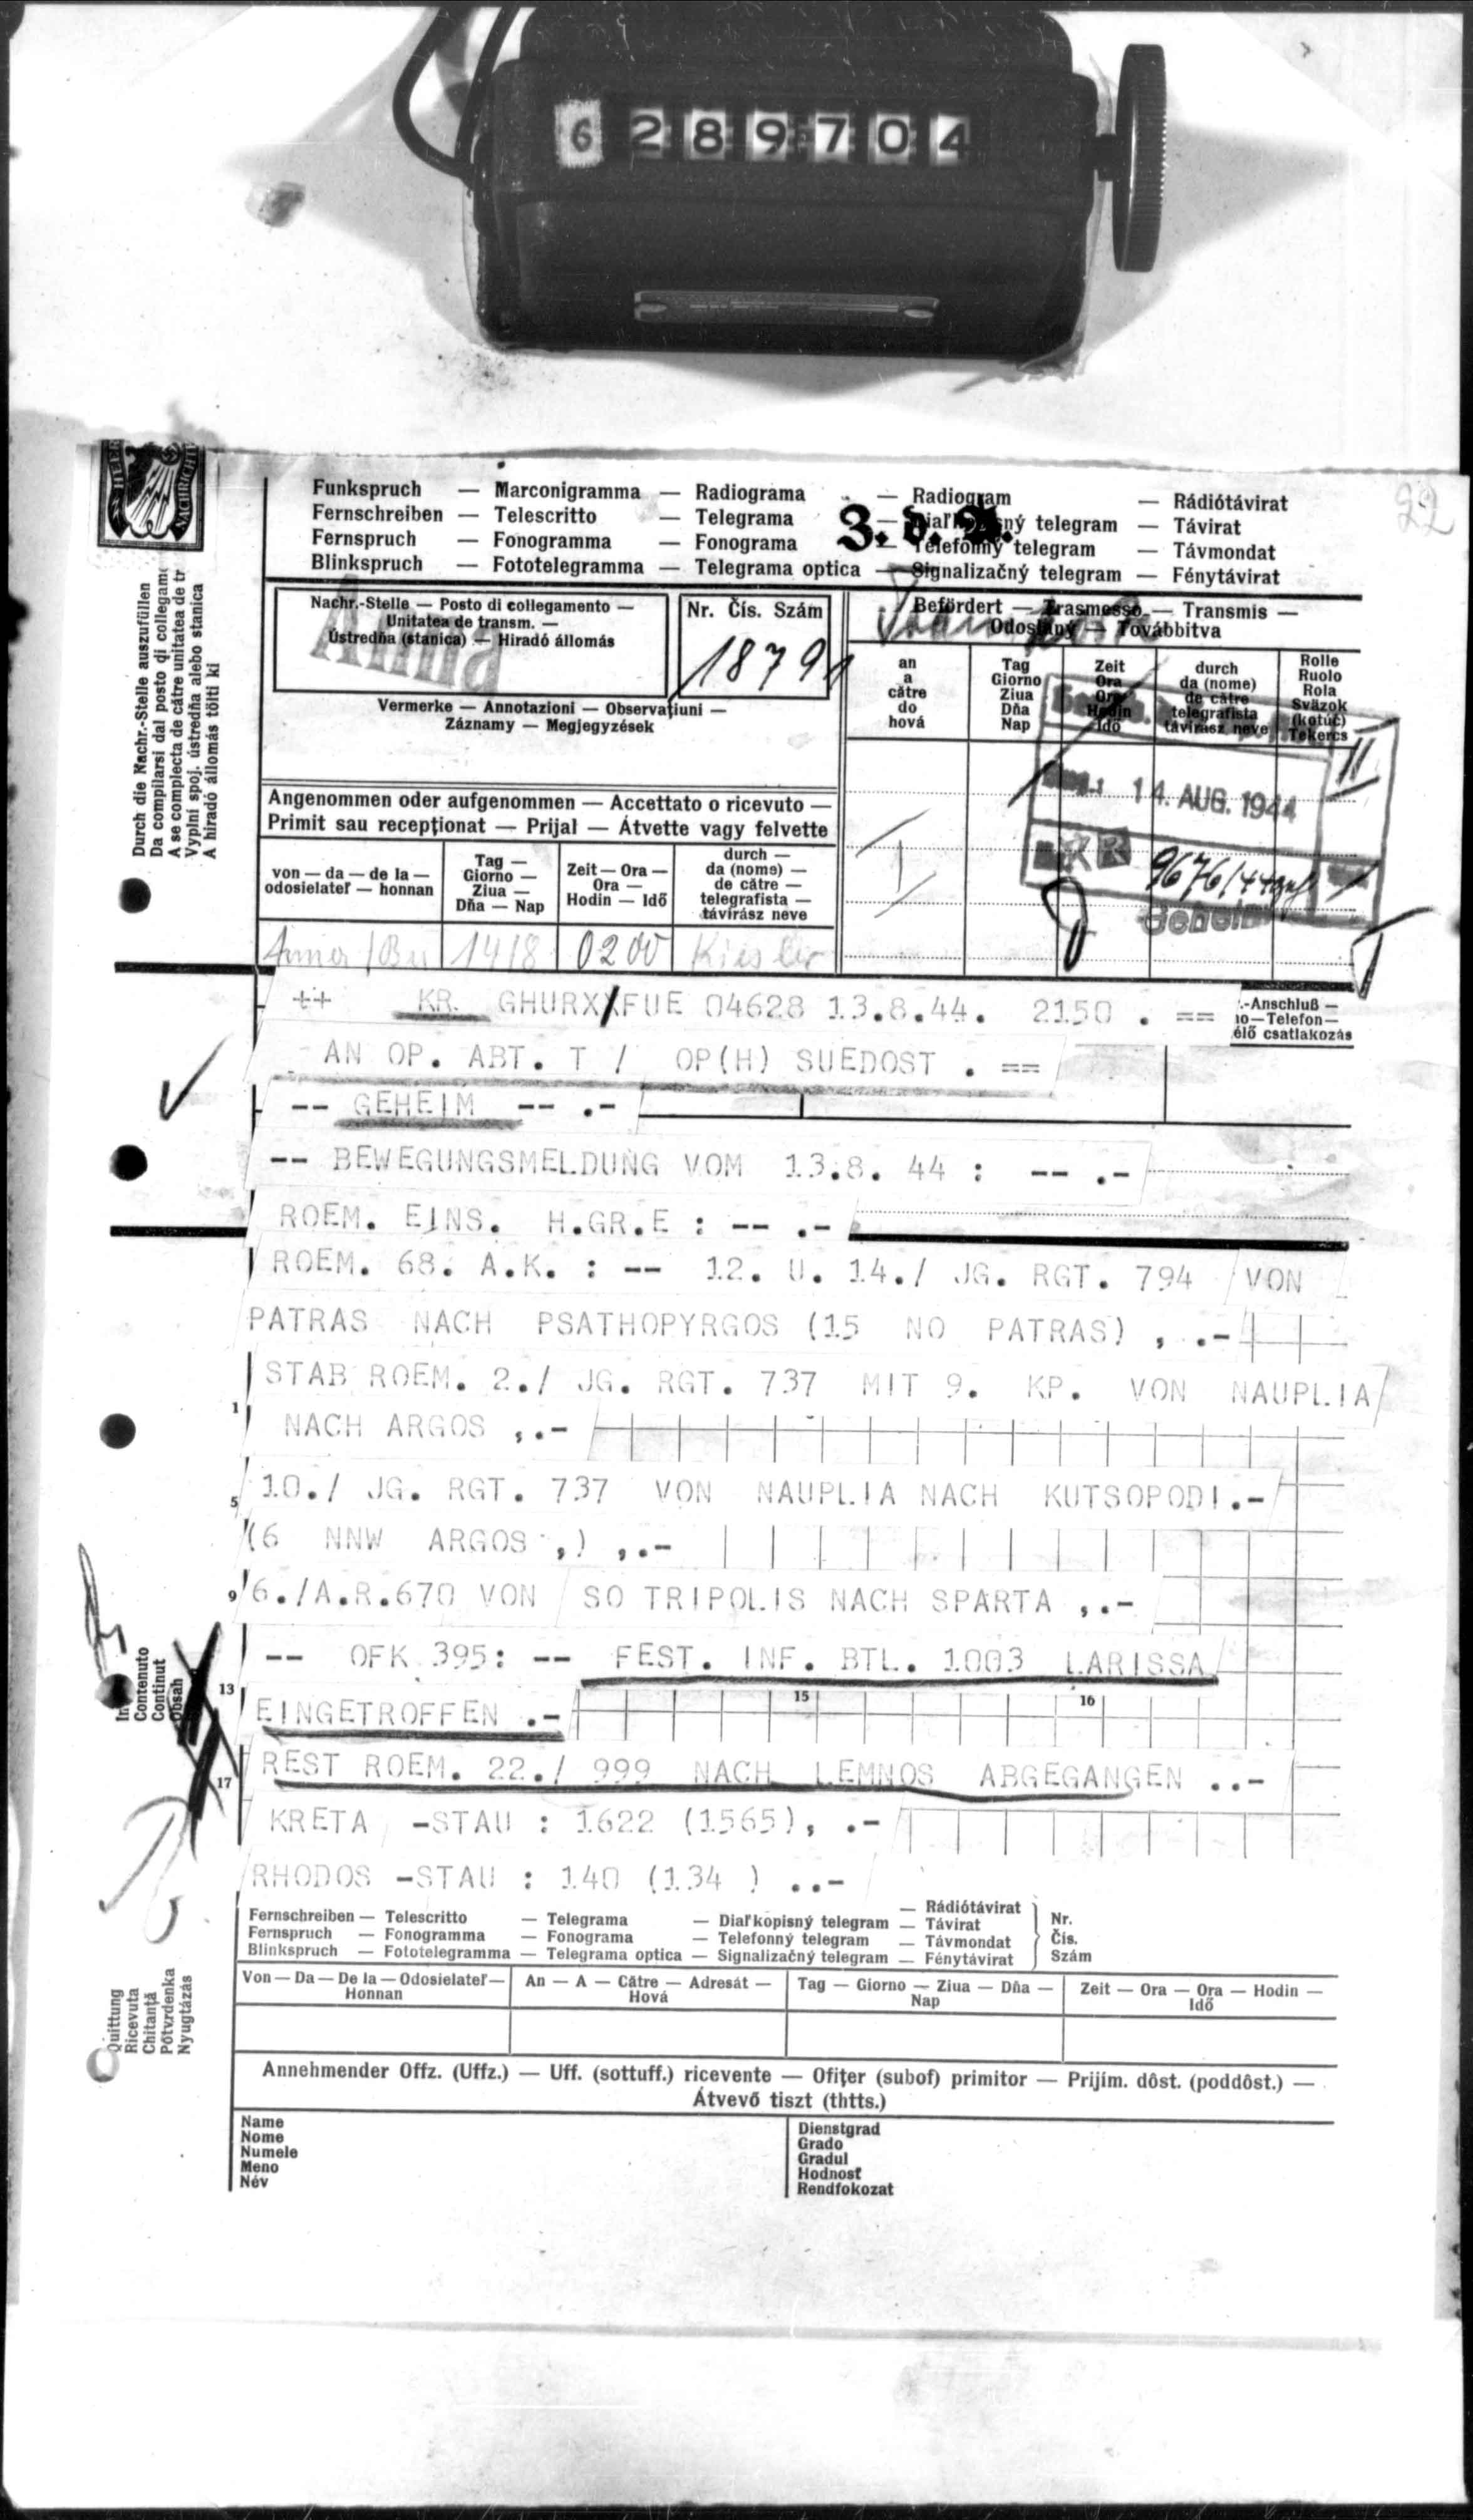 6 2 8 9 7 0 4
22
Funkspruch — Marconigramma — Radiograma — Radiogram — Rádiótávirat
Fernschreiben — Telescritto — Telegrama — telegram — Távirat
Fernspruch — Fonogramma — Fonograma — Telefonný telegram — Távmondat
Blinkspruch — Fototelegramma — Telegrama optica — Signalizačný telegram — Fénytávirat
Durch die Nachr.-Stelle auszufüllen
Da compilarsi dal posto di collegam
A se complecta de către unitatea de tr
Vyplní spoj. ústredňa alebo stanica
A hiradó állomás tölti ki
Nachr.-Stelle — Posto di collegamento —
Unitatea de transm. —
Ústredňa (stanica) — Hiradó állomás
Anna
Nr. Čís. Szám
18791
Vermerke — Annotazioni — Observațiuni —
Záznamy — Megjegyzések
Befördert — Trasmesso — Transmis —
Odoslaný — Továbbitva
an
a
către
do
hová
Tag
Giorno
Ziua
Dňa
Nap
Zeit
Ora
Ora
Hodin
Idő
durch
da (nome)
de către
telegrafista
távirász neve
Rolle
Ruolo
Rola
Sväzok
(kotúč)
Tekercs
14. AUG. 1944
9676/44
Geheim
Angenommen oder aufgenommen — Accettato o ricevuto —
Primit sau recepționat — Prijal — Átvette vagy felvette
von — da — de la —
odosielateľ — honnan
Tag —
Giorno —
Ziua —
Dňa — Nap
Zeit — Ora —
Ora —
Hodin — Idő
durch —
da (nome) —
de către —
telegrafista —
távirász neve
14/8 0200
++ KR. GHURX/FUE 04628 13.8.44. 2150 . ==
.-Anschluß —
10—Telefon—
élő csatlakozás
AN OP. ABT. T / OP(H) SUEDOST . ==
-- GEHEIM -- .-
-- BEWEGUNGSMELDUNG VOM 13.8. 44 : -- .-
ROEM. EINS. H.GR.E : -- .-
ROEM. 68. A.K. : -- 12. U. 14./ JG. RGT. 794 VON
PATRAS NACH PSATHOPYRGOS (15 NO PATRAS) , .-
STAB ROEM. 2./ JG. RGT. 737 MIT 9. KP. VON NAUPLIA
1 NACH ARGOS ,.-
5 10./ JG. RGT. 737 VON NAUPLIA NACH KUTSOPODI.-
(6 NNW ARGOS ,) ,.-
9 6./A.R.670 VON SO TRIPOLIS NACH SPARTA ,.-
-- OFK 395: -- FEST. INF. BTL. 1003 LARISSA
Contenuto
Continut
Obsah
13 15 16
EINGETROFFEN .-
17 REST ROEM. 22./ 999 NACH LEMNOS ABGEGANGEN ..-
KRETA -STAU : 1622 (1565), .-
RHODOS -STAU : 140 (134 ) ..-
— Rádiótávirat
Fernschreiben — Telescritto — Telegrama — Diaľkopisný telegram — Távirat
Fernspruch — Fonogramma — Fonograma — Telefonný telegram — Távmondat
Blinkspruch — Fototelegramma — Telegrama optica — Signalizačný telegram — Fénytávirat
Nr.
Čís.
Szám
Quittung
Ricevuta
Chitanță
Pôtvrdenka
Nyugtázás
Von — Da — De la — Odosielateľ —
Honnan
An — A — Către — Adresát —
Hová
Tag — Giorno — Ziua — Dňa —
Nap
Zeit — Ora — Ora — Hodin —
Idő
Annehmender Offz. (Uffz.) — Uff. (sottuff.) ricevente — Ofițer (subof) primitor — Prijím. dôst. (poddôst.) —
Átvevő tiszt (thtts.)
Name
Nome
Numele
Meno
Név
Dienstgrad
Grado
Gradul
Hodnosť
Rendfokozat